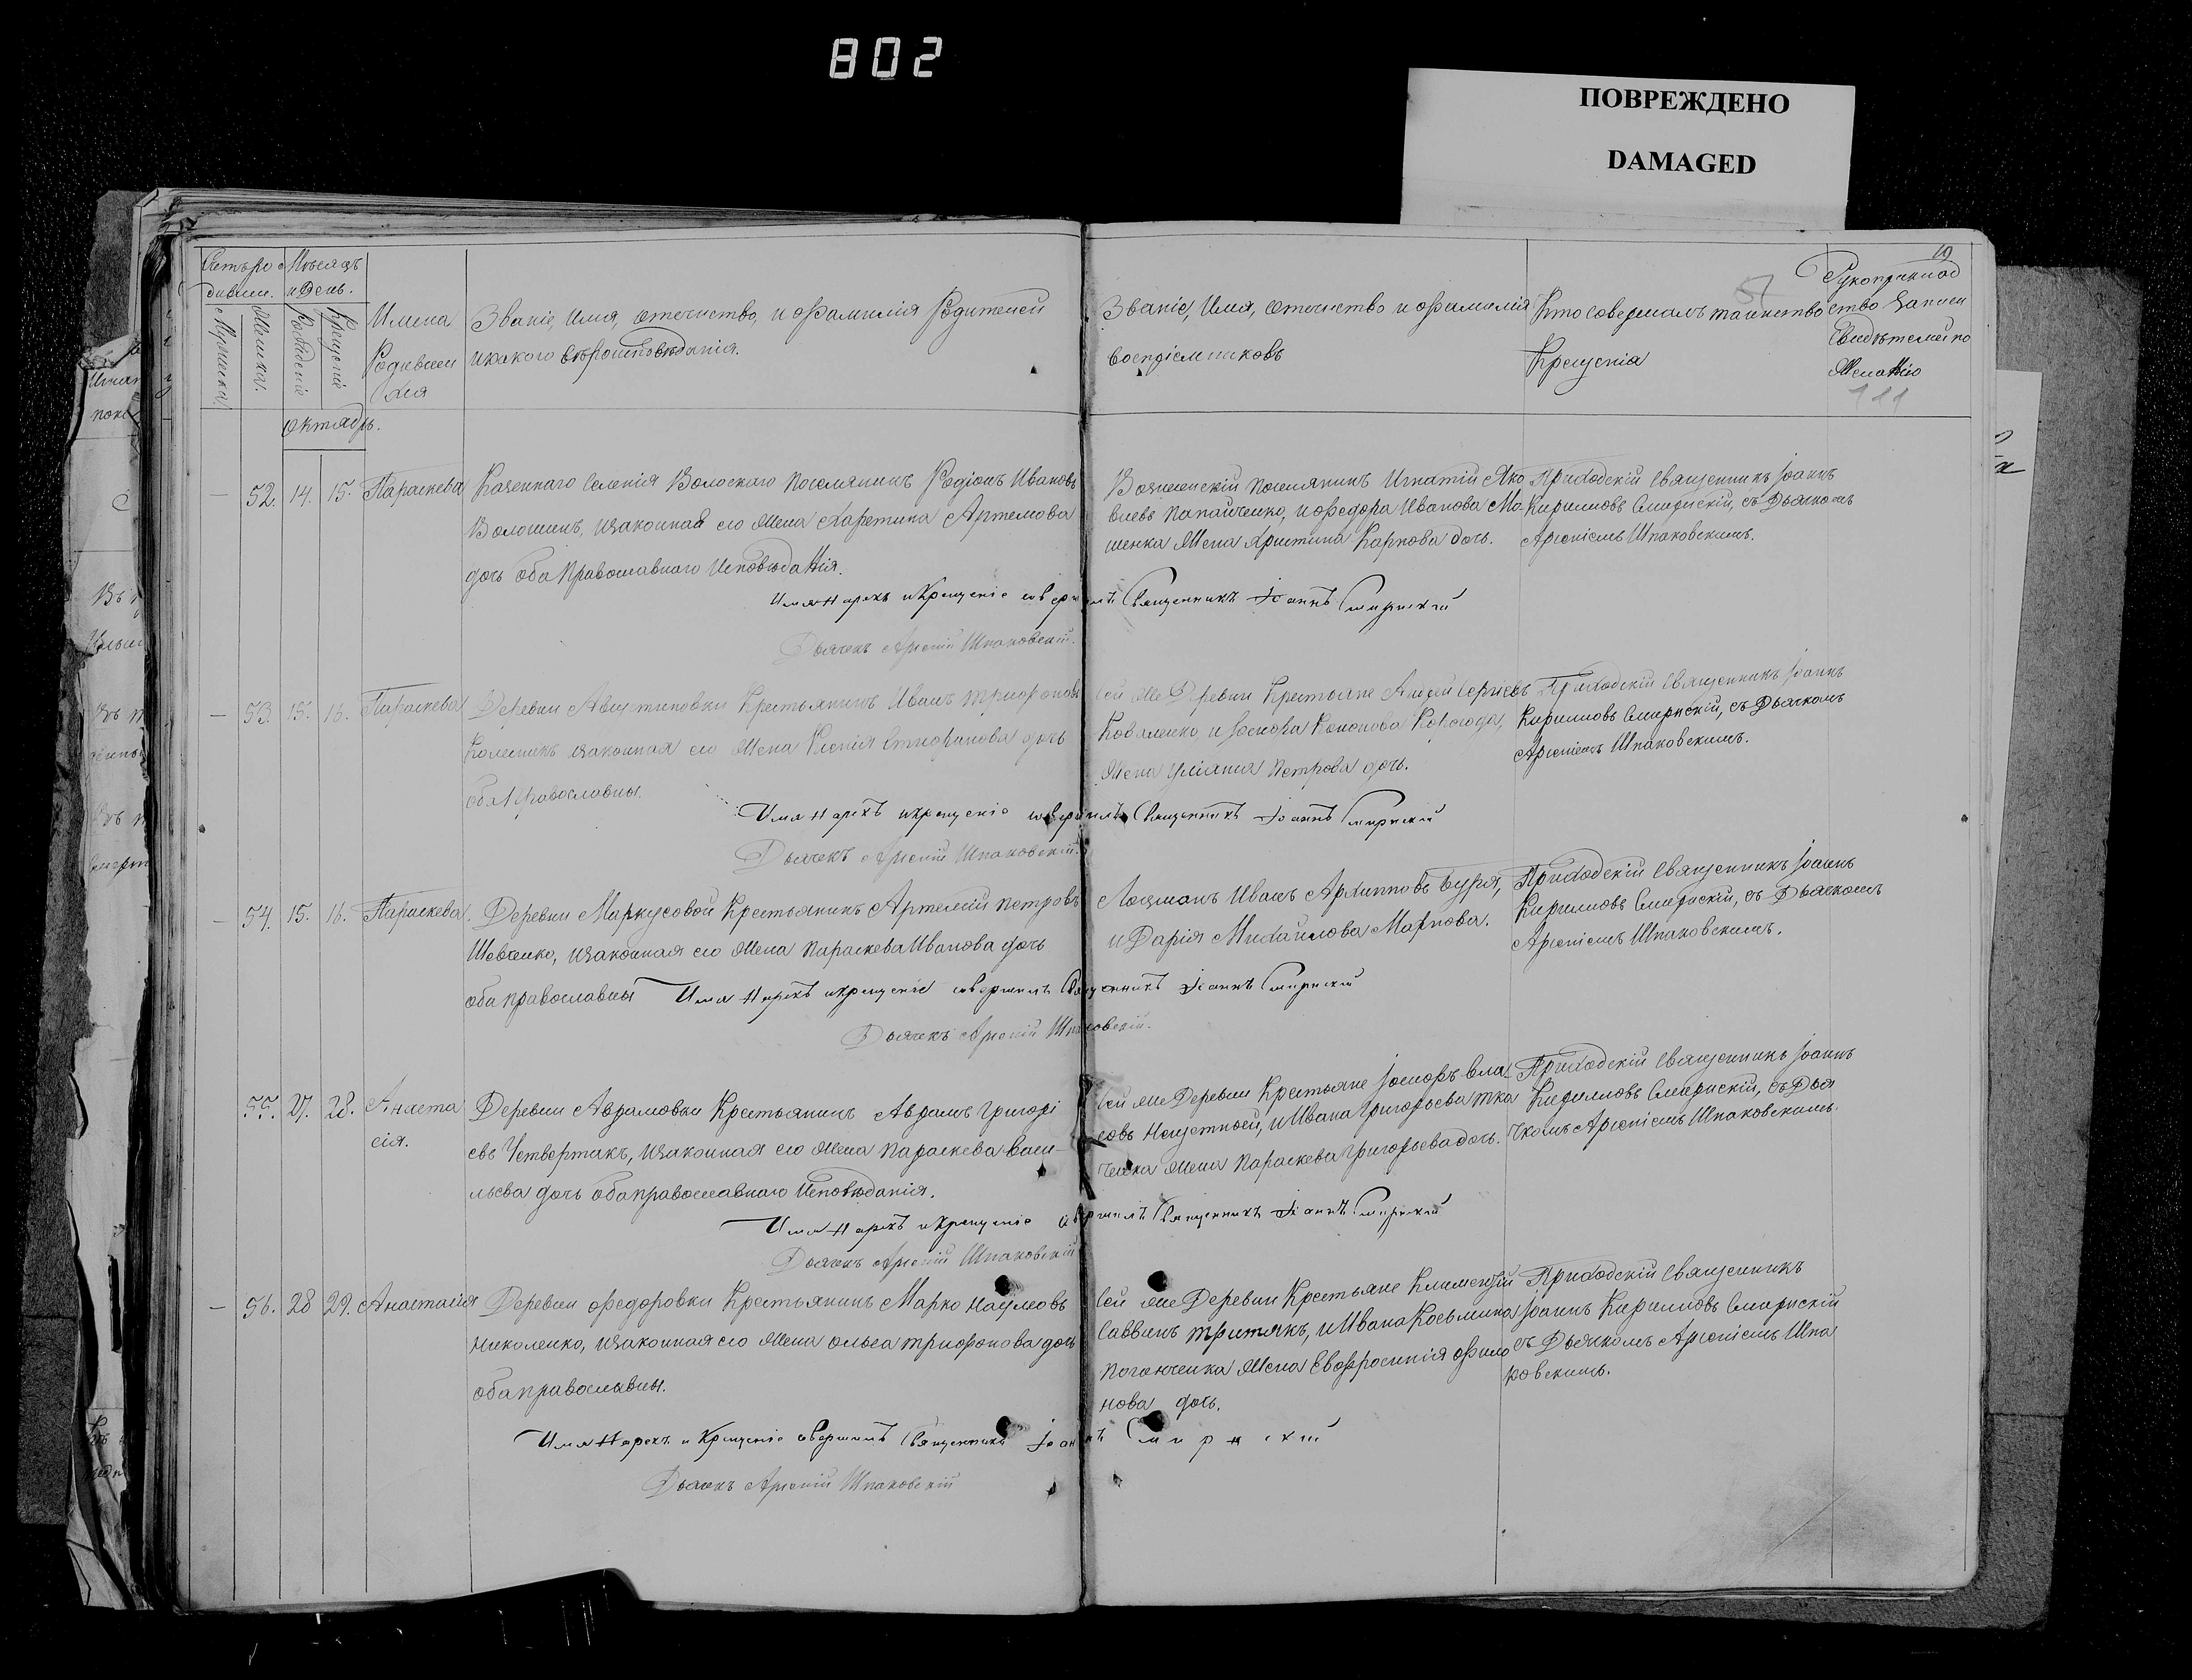 802
ПОВРЕЖДЕНО
DAMAGED
19
57
111
Счетъ родивши.
Мѣсяцъ и День.
Мужеска
Женска.
Рожденіе
Крещеніе
Имена Родившихся
Званіе, Имя, отечество, и фамилія Родителей
и какого вѣроисповѣданія.
Званіе, Имя, отечество и фамилія
воспріемниковъ
Кто совершалъ таинство
Крещенія
Рукоприкладство записи
свидѣтелей по
желанію
Октябрь.
52. 14. 15. Параскева
Казеннаго Селенія Волоскаго поселянинъ Родіонъ Ивановъ
Волошинъ, и законная его жена Харитина Артемова
дочь оба Православнаго Исповѣданія.
Вознесенскій поселянинъ Игнатій Яко
влевъ Папайченко, и Федора Иванова Мо-
шенка жена Христина Карпова дочь.
Приходскій Священникъ Іоаннъ
Кирилловъ Смирнскій, съ Дьячкомъ
Арсеніемъ Шпаковскимъ.
Имя Нарекъ и Крещеніе совершилъ Священникъ Іоаннъ Смирнскій
Дьячекъ Арсеній Шпаковскій.
53. 15. 16. Параскева
Деревни Августиновки Крестьянинъ Иванъ Трифоновъ
Колесникъ и законная его жена Ксенія Стефанова дочь
оба Православны.
Сей же Деревни Крестьяне Андрей Сергіевъ
Коваленко, и Іосифа Кононова
жена Уліянія Петрова дочь.
Приходскій Священникъ Іоаннъ
Кирилловъ Смирнскій, съ Дьячкомъ
Арсеніемъ Шпаковскимъ.
Имя Нарекъ и крещеніе совершилъ Священникъ Іоаннъ Смирнскій
Дьячекъ Арсеній Шпаковскій.
54. 15. 16. Параскева.
Деревни Маркусовой Крестьянинъ Артемій Петровъ
Шевченко, и законная его жена Параскева Иванова дочь
оба православны
Лоцманъ Иванъ Архиповъ Буря,
и Дарія Михайлова Маркова.
Приходскій Священникъ Іоаннъ
Кирилловъ Смирнскій, съ Дьячкомъ
Арсеніемъ Шпаковскимъ.
Имя Нарекъ и крещеніе совершилъ Священникъ Іоаннъ Смирнскій
Дьячекъ Арсеній Шпаковскій.
55. 27. 28. Анаста
сія.
Деревни Авдамовки Крестьянинъ Авдамъ Григорі
евъ Четвертакъ, и законная его жена Параскева Васи-
льева дочь оба православнаго Исповѣданія.
Сей же Деревни Крестьяне Іосифъ Вла-
совъ и Ивана Григорьева Тка
ченка жена Параскева Григорьева дочь.
Приходскій Священникъ Іоаннъ
Кирилловъ Смирнскій, съ Дья
чкомъ Арсеніемъ Шпаковскимъ.
Имя Нарекъ и Крещеніе совершилъ Священникъ Іоаннъ Смирнскій
Дьячекъ Арсеній Шпаковскій
56. 28 29. Анастасія
Деревни Федоровки Крестьянинъ Марко Наумовъ
Николенко, и законная его жена Ольга Трифонова дочь
оба православны.
Сей же Деревни Крестьяне Климентій
Саввинъ Третякъ, и Ивана Косьмина
жена Евфросинія Филі
нова дочь.
Приходскій Священникъ
Іоаннъ Кирилловъ Смирнскій
съ Дьячкомъ Арсеніемъ Шпа
ковскимъ.
Имя Нарекъ и Крещеніе совершилъ Священникъ Іоаннъ Смирнскій
Дьячекъ Арсеній Шпаковскій